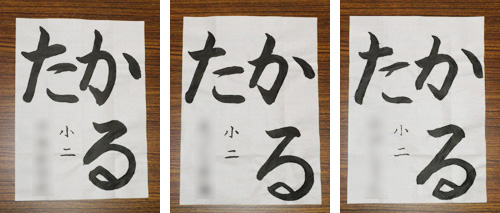 かる
た
小二
かる
た
小二
かる
た
小二